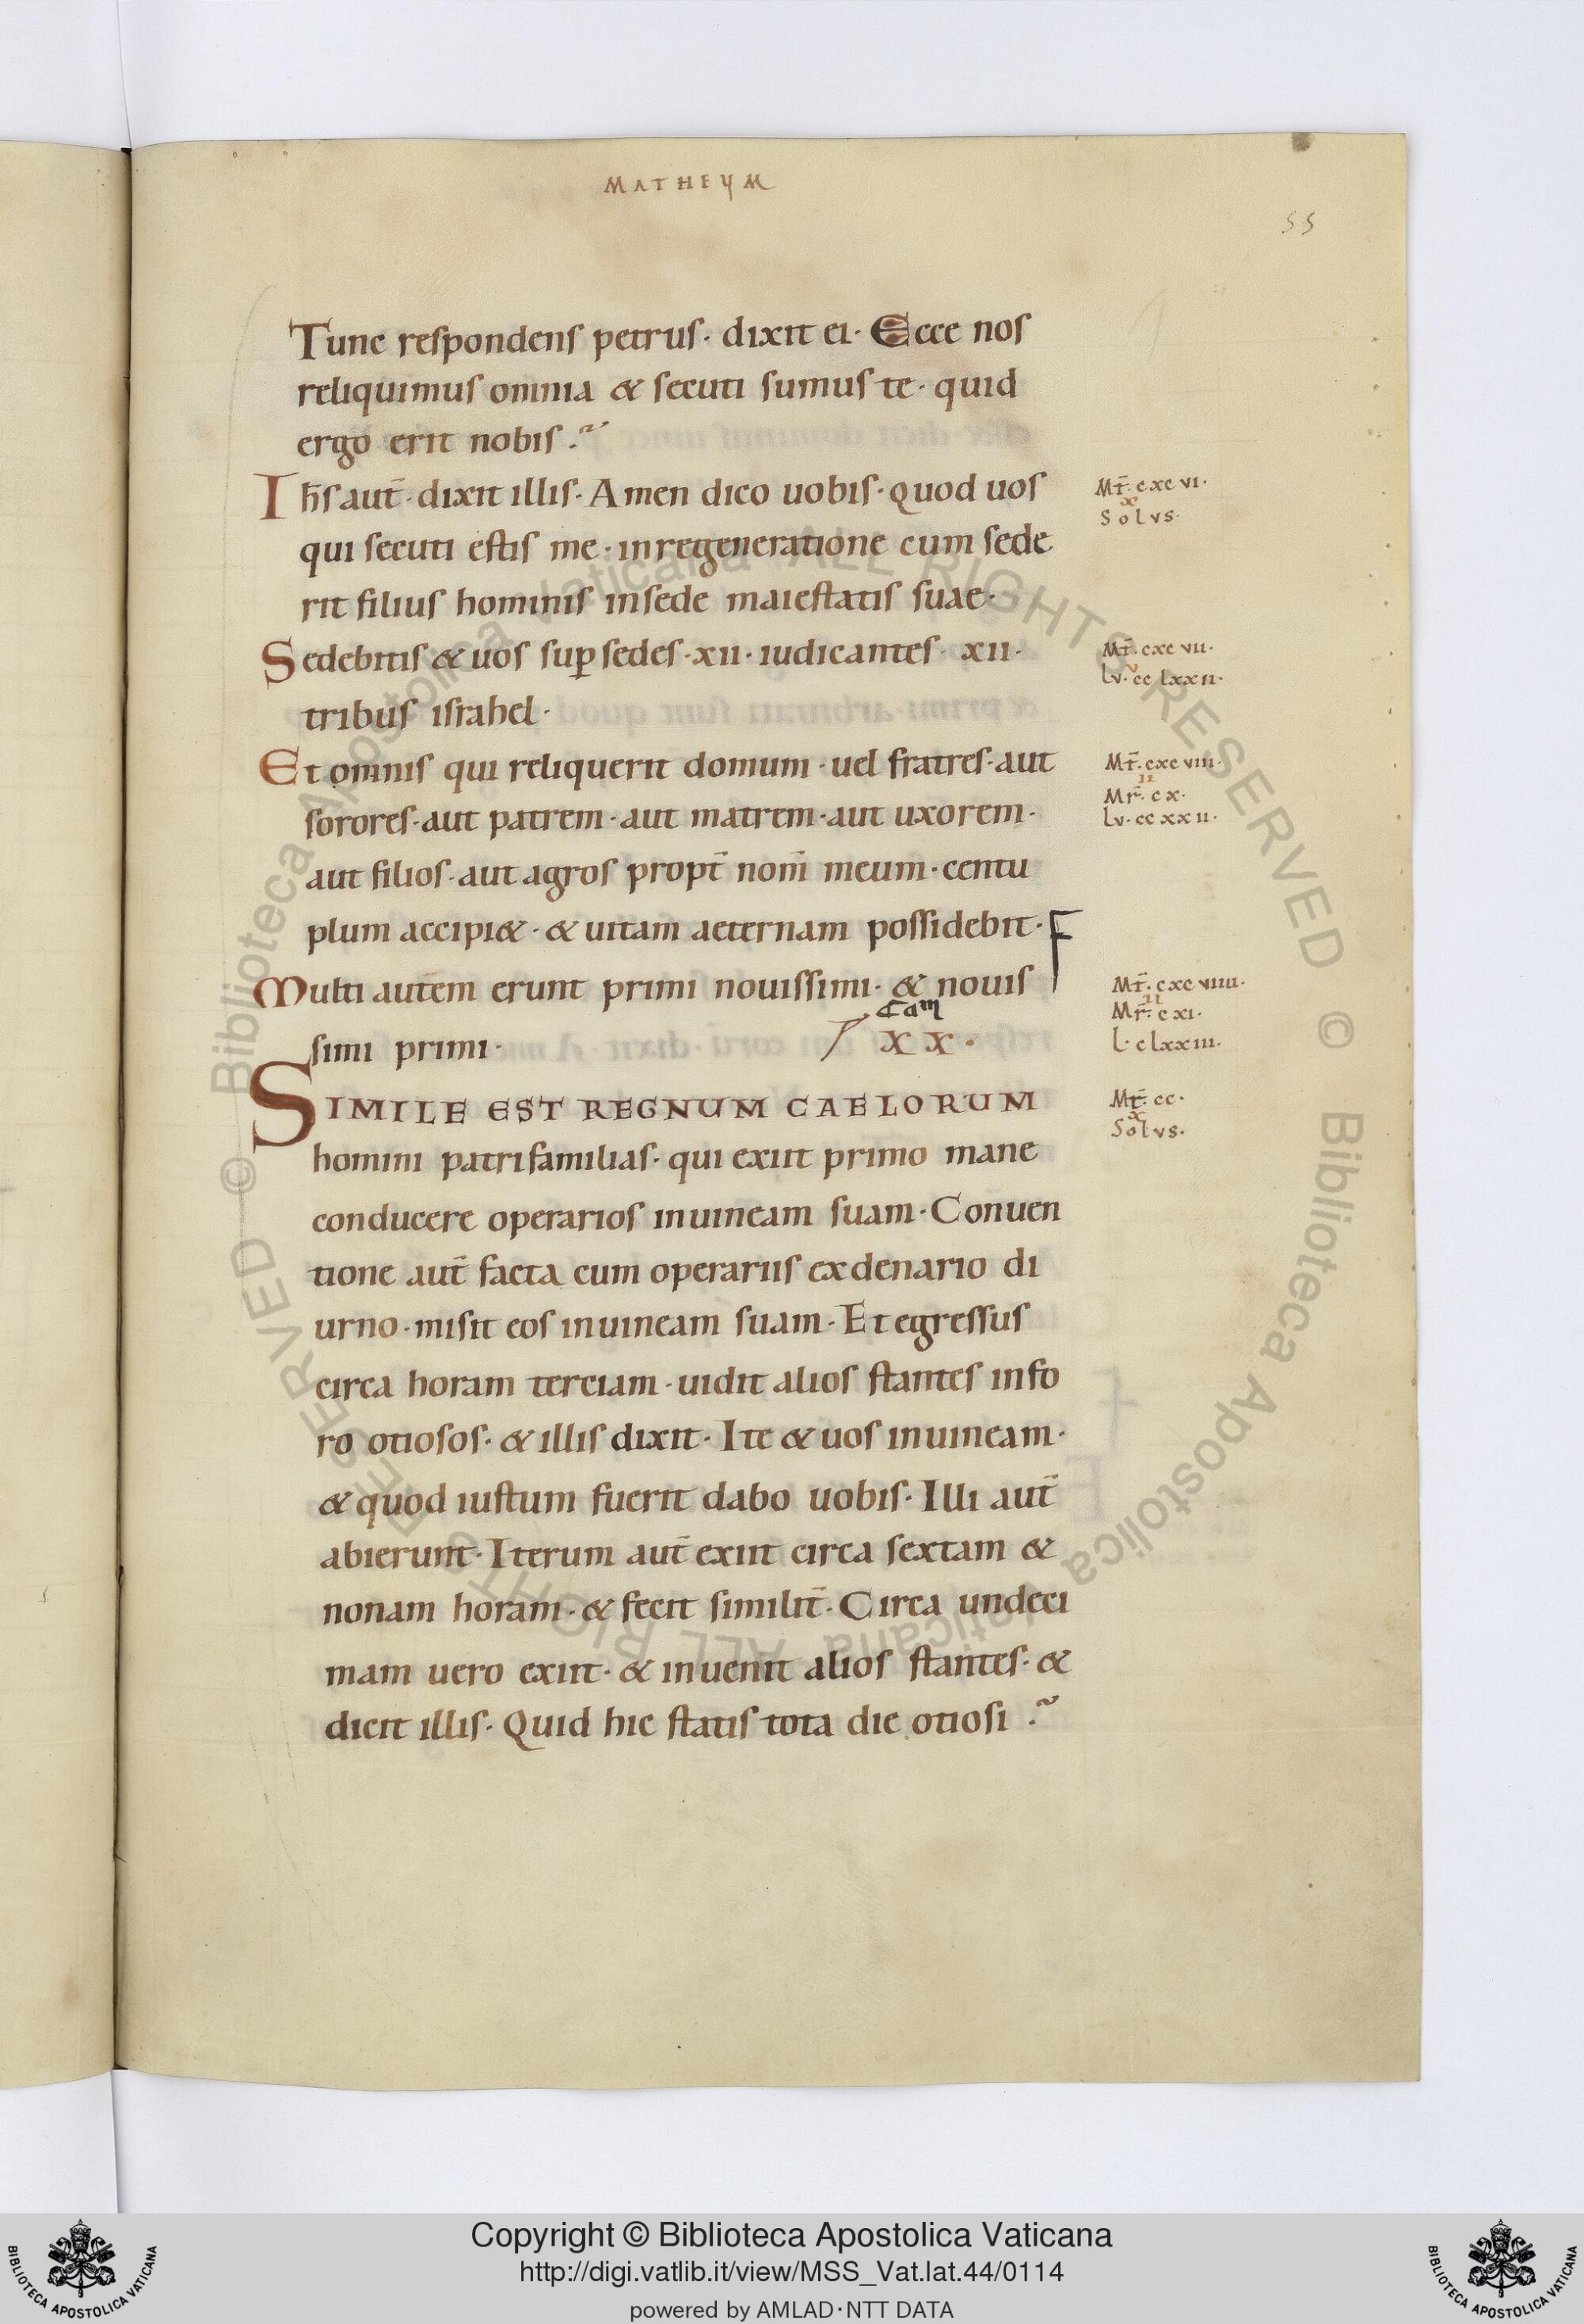 MATHEUM
55
Tunc respondens petrus· dixit ei· Ecce nos
reliquimus omnia & secuti sumus te· quid
ergo erit nobis·
Ih̄s aut̄· dixit illis· Amen dico uobis· Quod uos
Mt̄· cxcvi·
x
Solus·
qui secuti estis me· inregeneratione cum sede
rit filius hominis insede maiestatis suae·
Sedebitis & uos sup̱ sedes· xii· iudicantes· xii·
Mt̄· cxcvii·
v
Lu· cclxxii·
tribus israhel·
Et omnis qui reliquerit domum· uel fratres· aut
Mt̄· cxcviii·
ii
sorores· aut patrem· aut matrem· aut uxorem·
Mr̄· cx·
Lu· ccxxii·
aut filios· aut agros propt̄ nom̄ meum· centu
plum accipi&· & uitam aeternam possidebit·
Multi autem erunt primi nouissimi· & nouis
Mt̄· cxcviiii·
ii
Mr̄· cxi·
simi primi·
Cam
xx·
L· clxxiii·
SIMILE EST REGNUM CAELORUM
Mt̄· cc·
x
Solus·
homini patrifamilias· qui exiit primo mane
conducere operarios inuineam suam· Conuen
tione aut̄ facta cum operariis exdenario di
urno· misit eos inuineam suam· Et egressus
circa horam terciam· uidit alios stantes info
ro otiosos· & illis dixit· Ite & uos inuineam·
& quod iustum fuerit dabo uobis· Illi aut̄
abierunt· Iterum aut̄ exiit circa sextam &
nonam horam· & fecit similit̄· Circa undeci
mam uero exiit· & inuenit alios stantes· &
dicit illis· Quid hic statis tota die otiosi
© Biblioteca Apostolica Vaticana ALL RIGHTS RESERVED
© Biblioteca Apostolica Vaticana ALL RIGHTS RESERVED
Copyright © Biblioteca Apostolica Vaticana
http://digi.vatlib.it/view/MSS_Vat.lat.44/0114
powered by AMLAD·NTT DATA
BIBLIOTECA APOSTOLICA VATICANA
BIBLIOTECA APOSTOLICA VATICANA